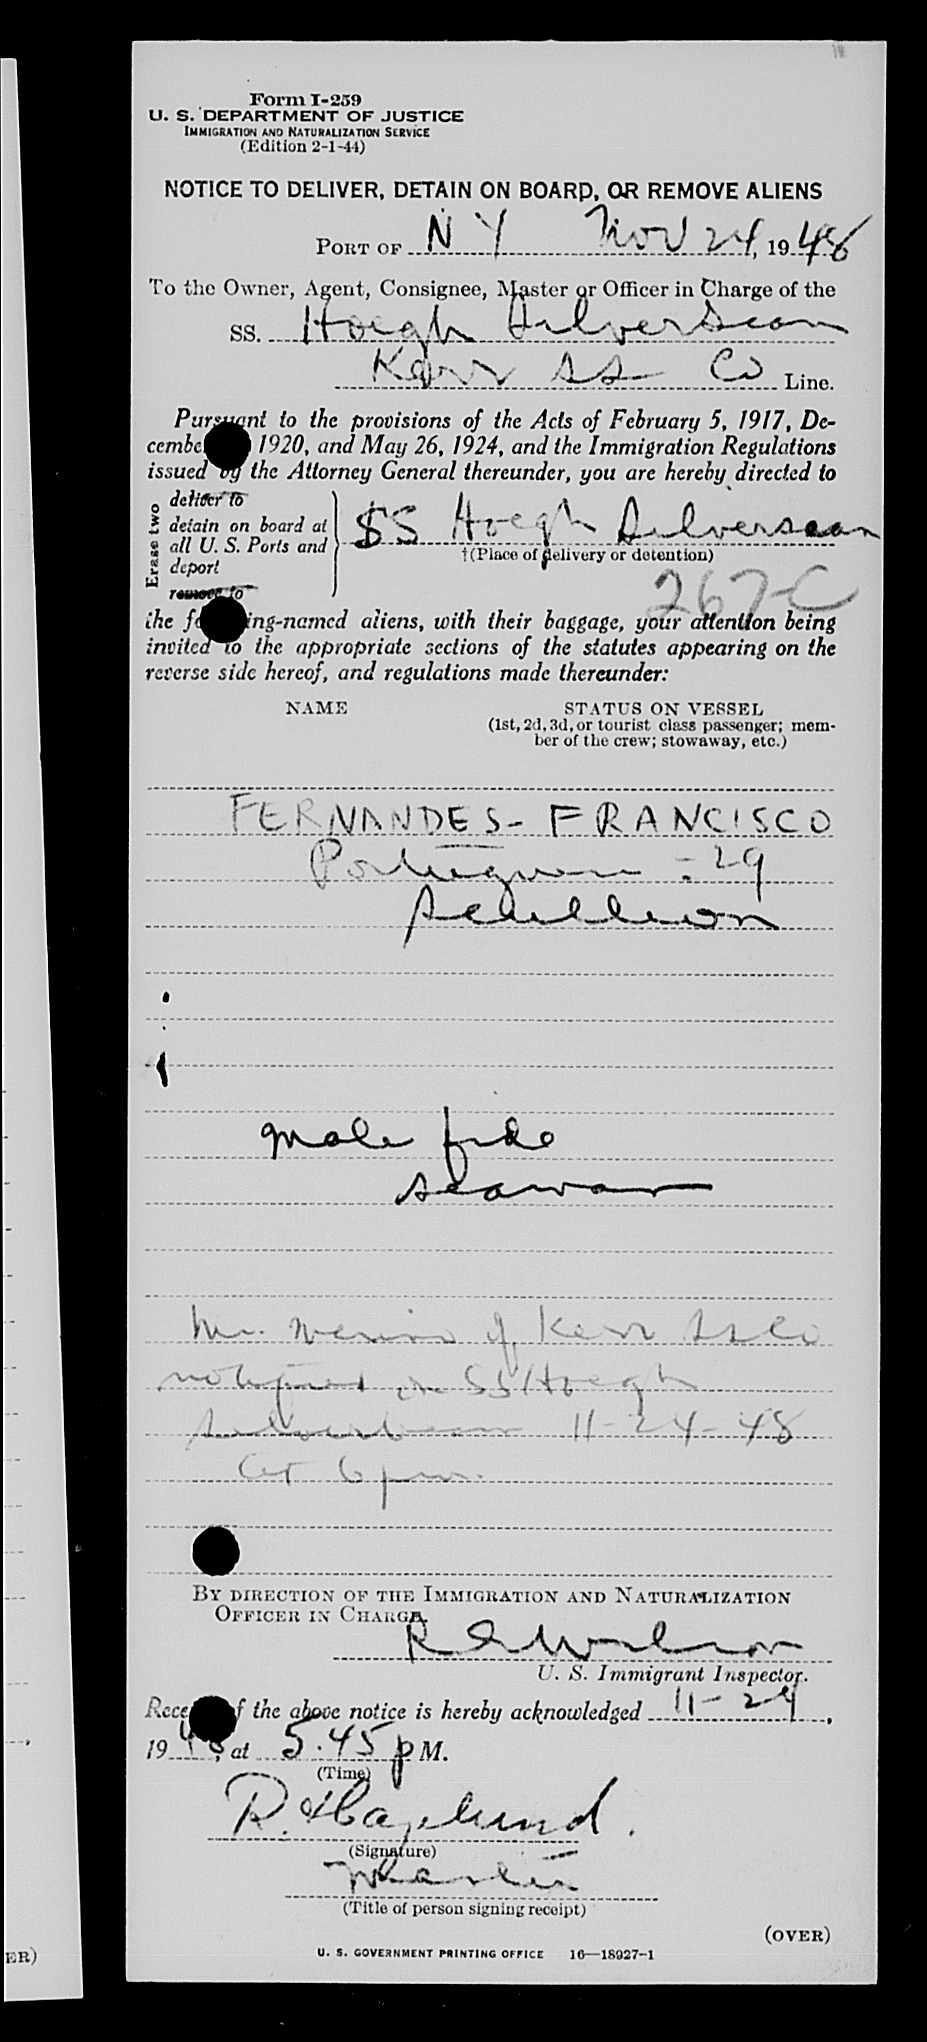 Form I-259
U. S. DEPARTMENT OF JUSTICE
IMMIGRATION AND NATURALIZATION SERVICE
(Edition 2-1-44)
NOTICE TO DELIVER, DETAIN ON BOARD, OR REMOVE ALIENS
PORT OF N Y Nov 24, 1948
To the Owner, Agent, Consignee, Master or Officer in Charge of the
SS. Hoegh Silverbeam
Kerr SS Co Line.
Pursuant to the provisions of the Acts of February 5, 1917, De-
cembe 1920, and May 26, 1924, and the Immigration Regulations
issued by the Attorney General thereunder, you are hereby directed to
Erase two
deliver to
detain on board at
all U. S. Ports and
deport
remove to
SS Hoegh Silverbeam
†(Place of delivery or detention)
267-C
the fo ing-named aliens, with their baggage, your attention being
invited to the appropriate sections of the statutes appearing on the
reverse side hereof, and regulations made thereunder:
NAME STATUS ON VESSEL
(1st, 2d, 3d, or tourist class passenger; mem-
ber of the crew; stowaway, etc.)
FERNANDES- FRANCISCO
Portuguese - 29
Scullion
mala fide
seaman
Mr. of Kerr SS Co
notified on SS Hoegh
Silverbeam 11-24-48
at 6 pm.
BY DIRECTION OF THE IMMIGRATION AND NATURALIZATION
OFFICER IN CHARGE.
U. S. Immigrant Inspector.
Rece f the above notice is hereby acknowledged 11-24,
1948, at 5.45 p M.
(Time)
R. Haglund.
(Signature)
Master
(Title of person signing receipt)
(OVER)
U. S. GOVERNMENT PRINTING OFFICE 16—18927-1
ER)